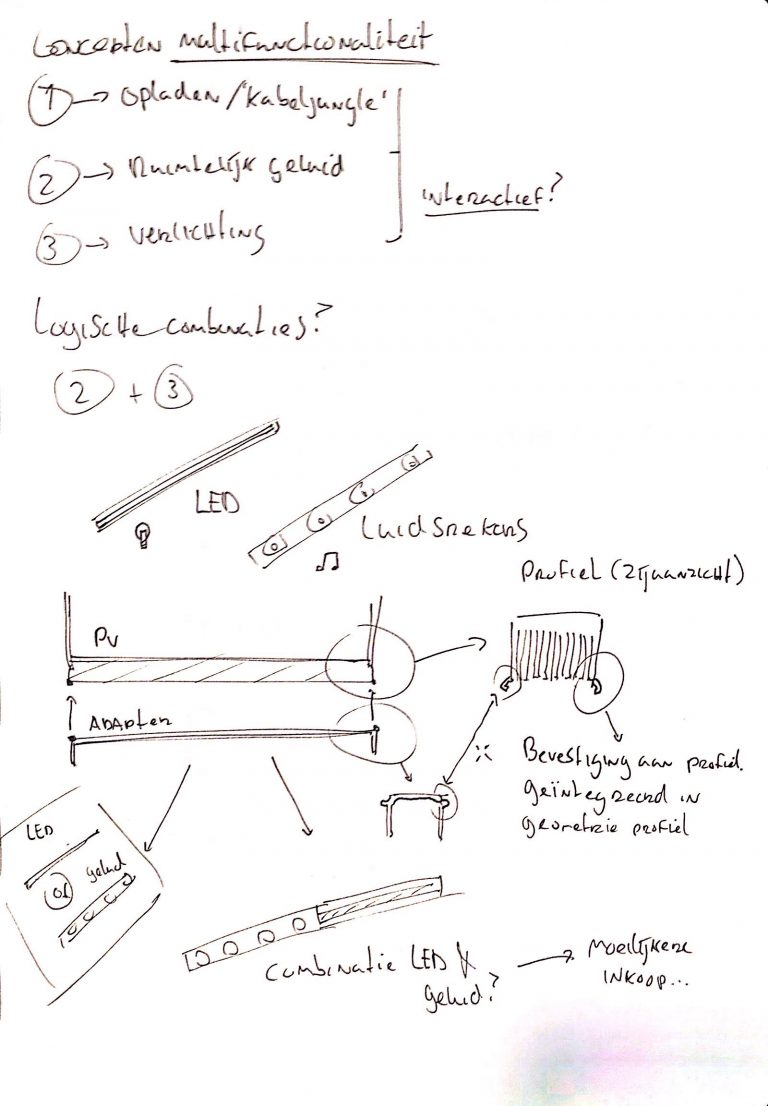 Concepten multifunctionaliteit
1 → opladen/'kabeljungle'
2 → Ruimtelijk geluid
3 → verlichting
interactief?
Logische combinaties?
2 + 3
LED
Luidsprekers
Profiel (zijaanzicht)
PU
Adapter
Bevestiging aan profiel.
geïntegreerd in
geometrie profiel
LED
OR
geluid
Combinatie LED &
geluid?
→ moeilijkere
inkoop...